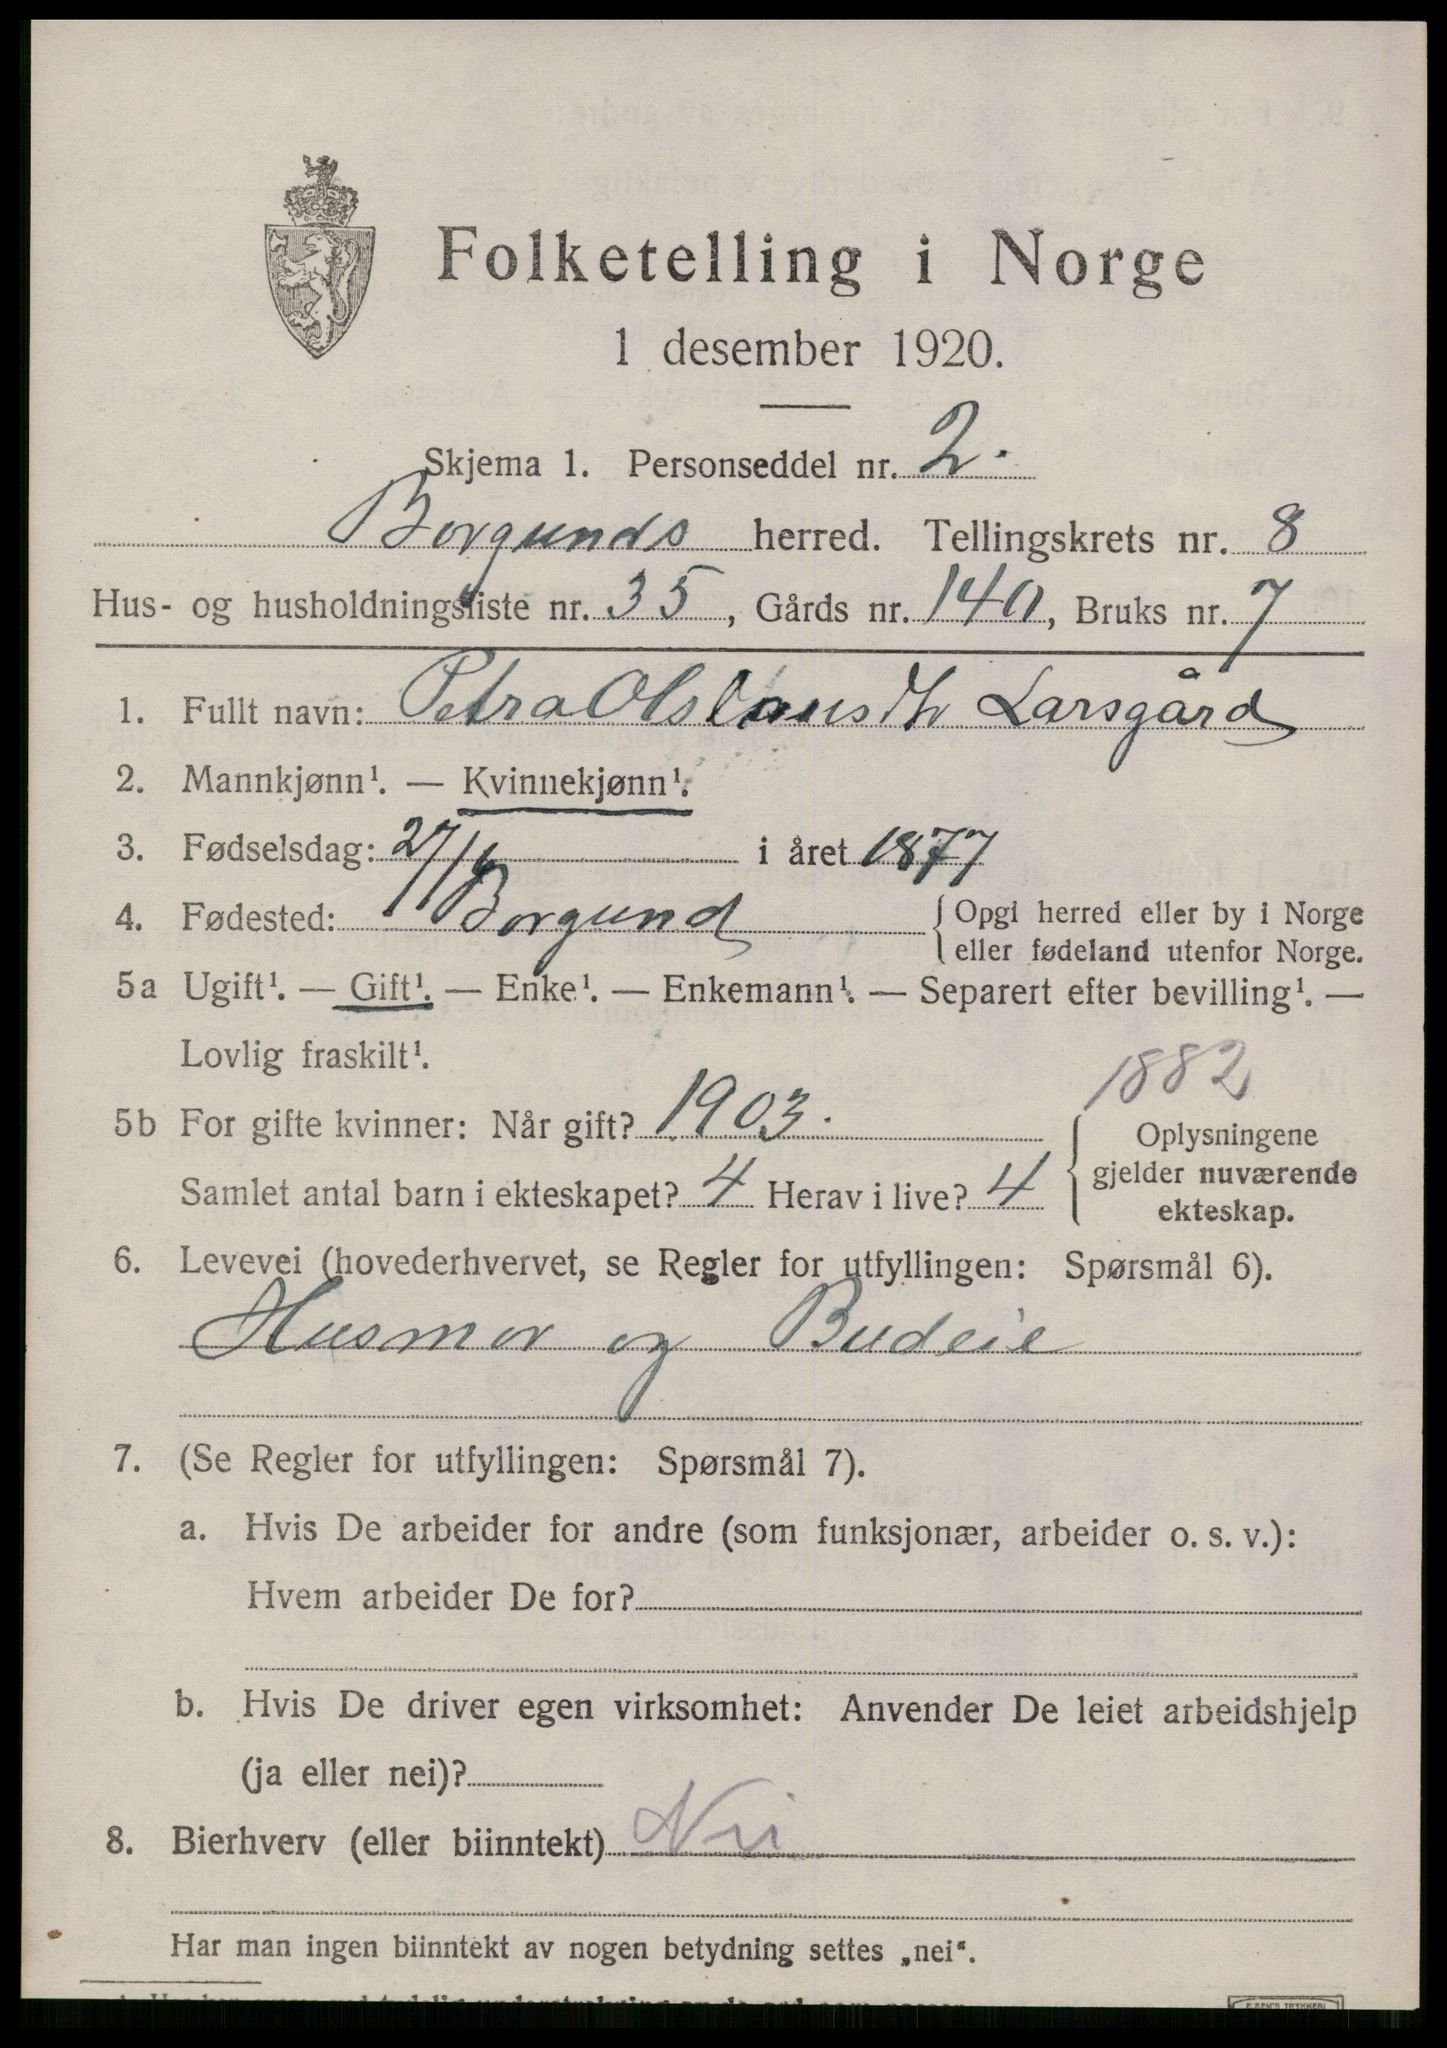 Folketelling i Norge
1 desember 1920.
Skjema 1. Personseddel nr. 2.
Borgunds herred. Tellingskrets nr. 8
Hus- og husholdningsliste nr. 35, Gårds nr. 140, Bruks nr. 7
1. Fullt navn: Petra Larsgård
2. Mannkjønn¹. — Kvinnekjønn¹.
3. Fødselsdag: 27/ i året 1877
4. Fødested: Borgund { Opgi herred eller by i Norge
eller fødeland utenfor Norge.
5a Ugift¹. — Gift¹. — Enke¹. — Enkemann¹. — Separert efter bevilling¹. —
Lovlig fraskilt¹.
1882
5b For gifte kvinner: Når gift? 1903.
Samlet antal barn i ekteskapet? 4 Herav i live? 4
{ Oplysningene
gjelder nuværende
ekteskap.
6. Levevei (hovederhvervet, se Regler for utfyllingen: Spørsmål 6).
Husmor og Budeie
7. (Se Regler for utfyllingen: Spørsmål 7).
a. Hvis De arbeider for andre (som funksjonær, arbeider o. s. v.):
Hvem arbeider De for?
b. Hvis De driver egen virksomhet: Anvender De leiet arbeidshjelp
(ja eller nei)?
8. Bierhverv (eller biinntekt) Nei
Har man ingen biinntekt av nogen betydning settes „nei“.